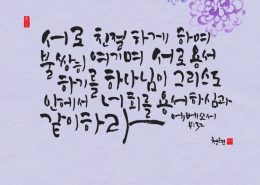 서로 친절하게 하여
불쌍히 여기며 서로 용서
하기를 하나님이 그리스도
안에서 너희를 용서하심과
같이하라
에베소서
4:32